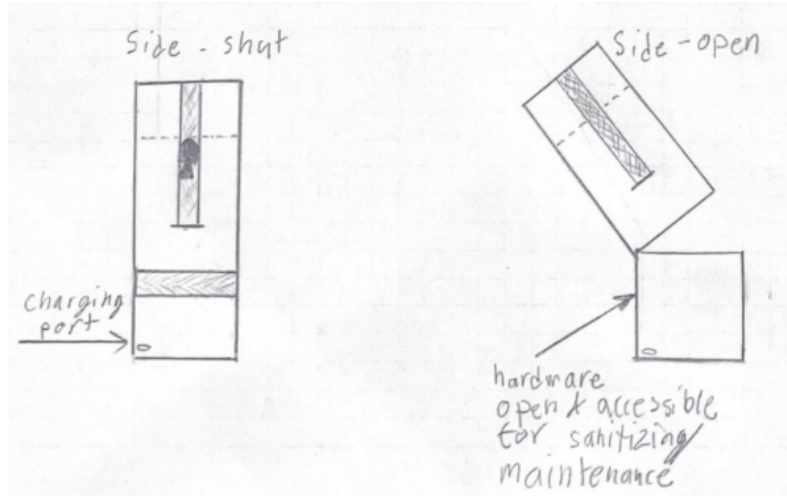 Side - shut
Side - open
charging
port
hardware
open & accessible
for sanitizing/
maintenance